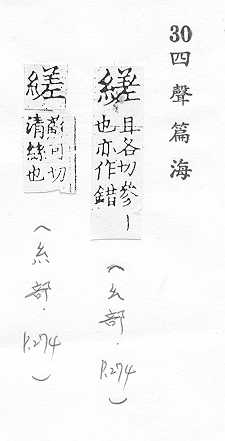 30四聲篇海
縒
且各切參丨
也亦作錯
(幺部.P.274)
縒
可切
清絲也
(糸部.P.274)